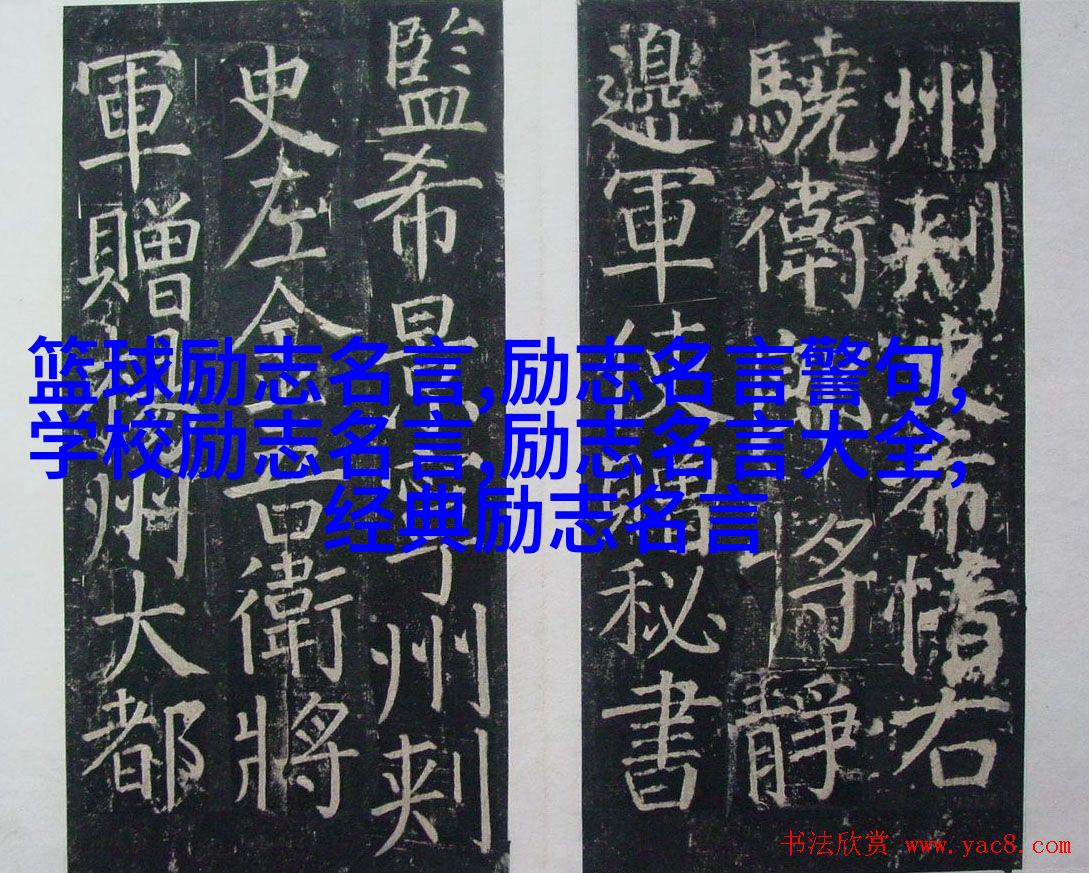 篮球励志名言,励志名言警句,
学校励志名言,励志名言大全,
经典励志名言
州刾史希右
驍衛將靜
邊軍使贈秘書
監希景寧州刾
史左金吾衛將
軍贈揚州大都
书法欣赏 www.yac8.com